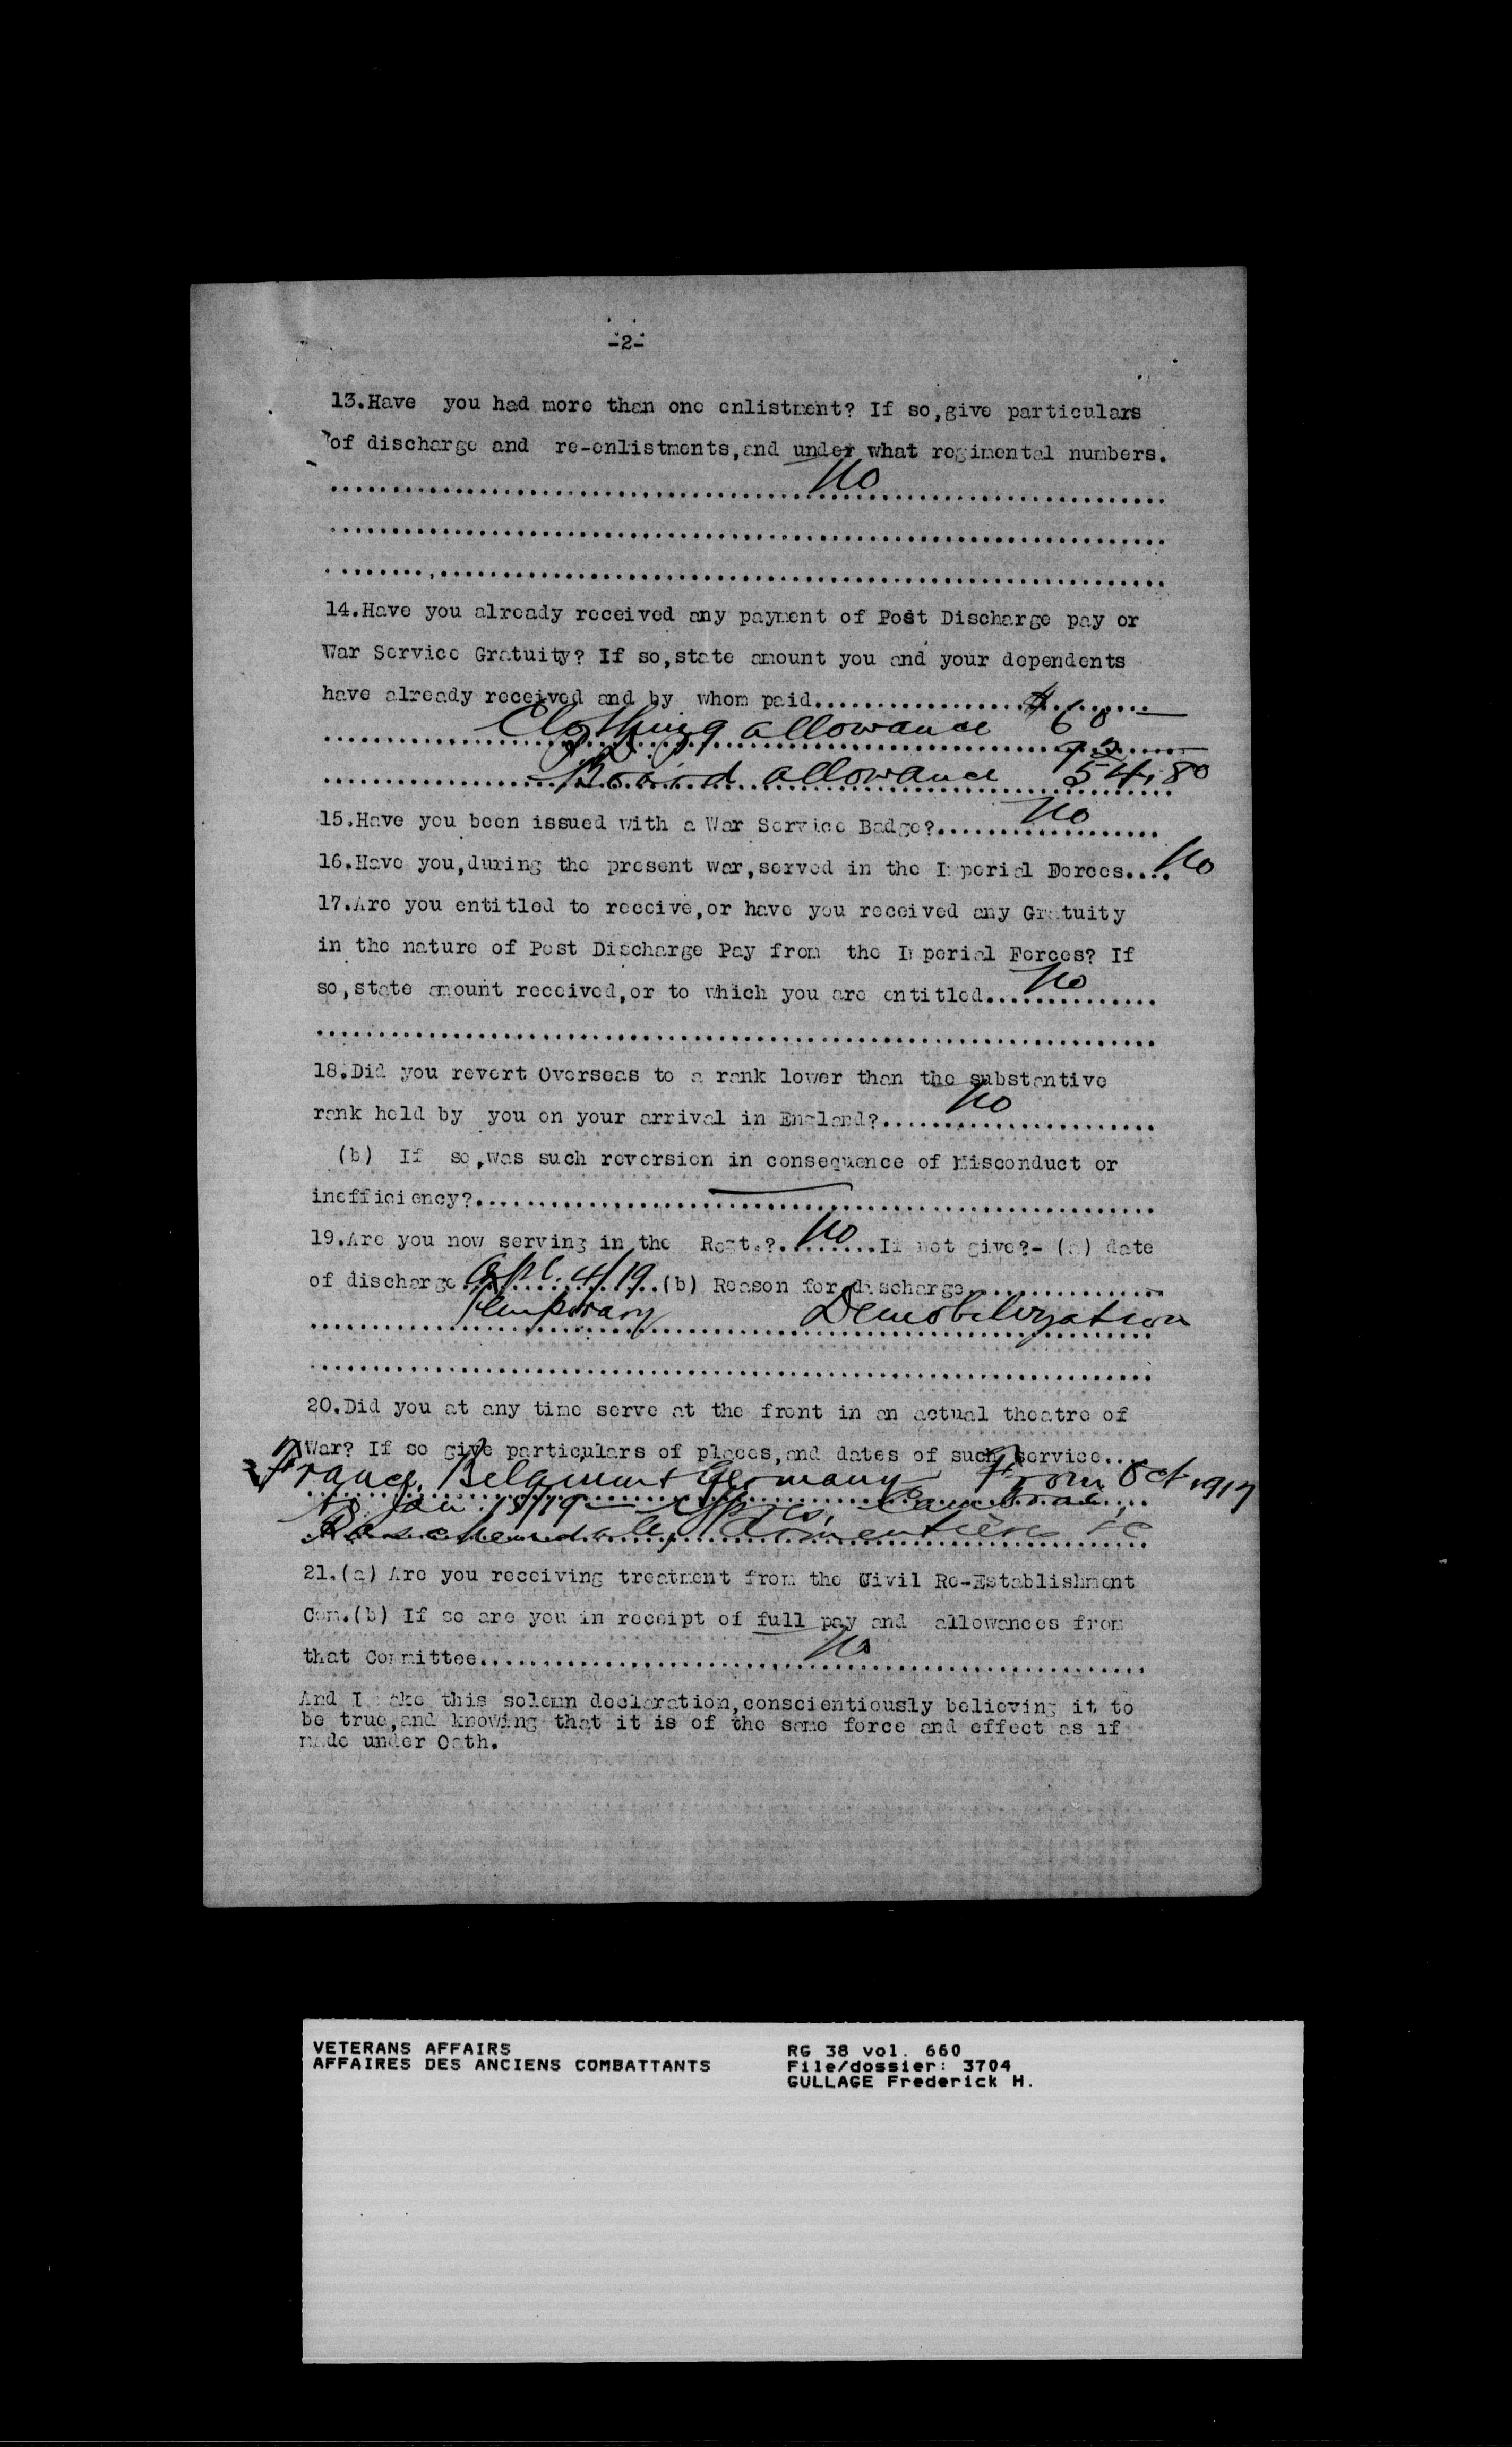 -2-
13.Have you had more than one enlistment? If so,give particulars
of discharge and re-enlistments,and under what regimental numbers.
No
14.Have you already received any payment of Post Discharge pay or
War Service Gratuity? If so,state amount you and your dependents
have already received and by whom paid....................
Clothing allowance $60
Board allowance 54.80
15.Have you been issued with a War Service Badge?.......No
16.Have you,during the present war,served in the Imperial Forces....No
17.Are you entitled to receive,or have you received any Gratuity
in the nature of Post Discharge Pay from the Imperial Forces? If
so,state amount received,or to which you are entitled.....No
18.Did you revert Overseas to a rank lower than the substantive
rank held by you on your arrival in England?.......No
(b) If so,was such reversion in consequence of Misconduct or
inefficiency?....................
19.Are you now serving in the Regt.?...No.....If not give?-(a) date
of discharge Apl. 4/19..(b) Reason for discharge...............
temporary Demobilization
20.Did you at any time serve at the front in an actual theatre of
War? If so give particulars of places,and dates of such service...
France, Belgium & Germany From Oct 1917
to Jan 15/19 - Ypres, Cambrai,
Passchendale, Armentières &c
21.(a) Are you receiving treatment from the Civil Re-Establishment
Com.(b) If so are you in receipt of full pay and allowances from
that Committee..........No
And I make this solemn declaration,conscientiously believing it to
be true,and knowing that it is of the same force and effect as if
made under Oath.
VETERANS AFFAIRS
AFFAIRES DES ANCIENS COMBATTANTS
RG 38 vol. 660
File/dossier: 3704
GULLAGE Frederick H.